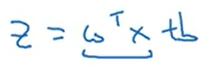 z = w^T x + b